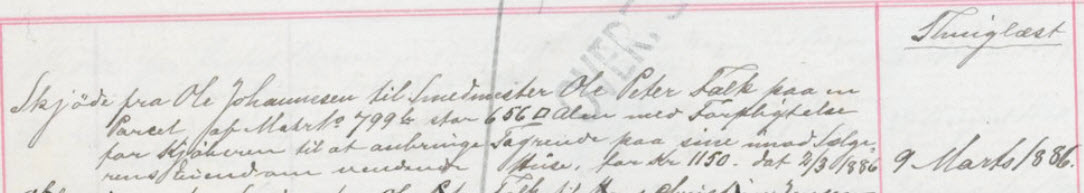 Thinglæst
Skjöde fra Ole Johannesen til Smedmester Ole Peter Falk paa en
Parcel af Matr No 799 b stor 656 □ Alen med Forpligtelse
for Kjöberen til at anbringe Tagrende paa sine imod Sælge-
rens Eiendom vendende Huse, for Kr 1150. dat 2/3 1886
9 Marts 1886.
OVER.